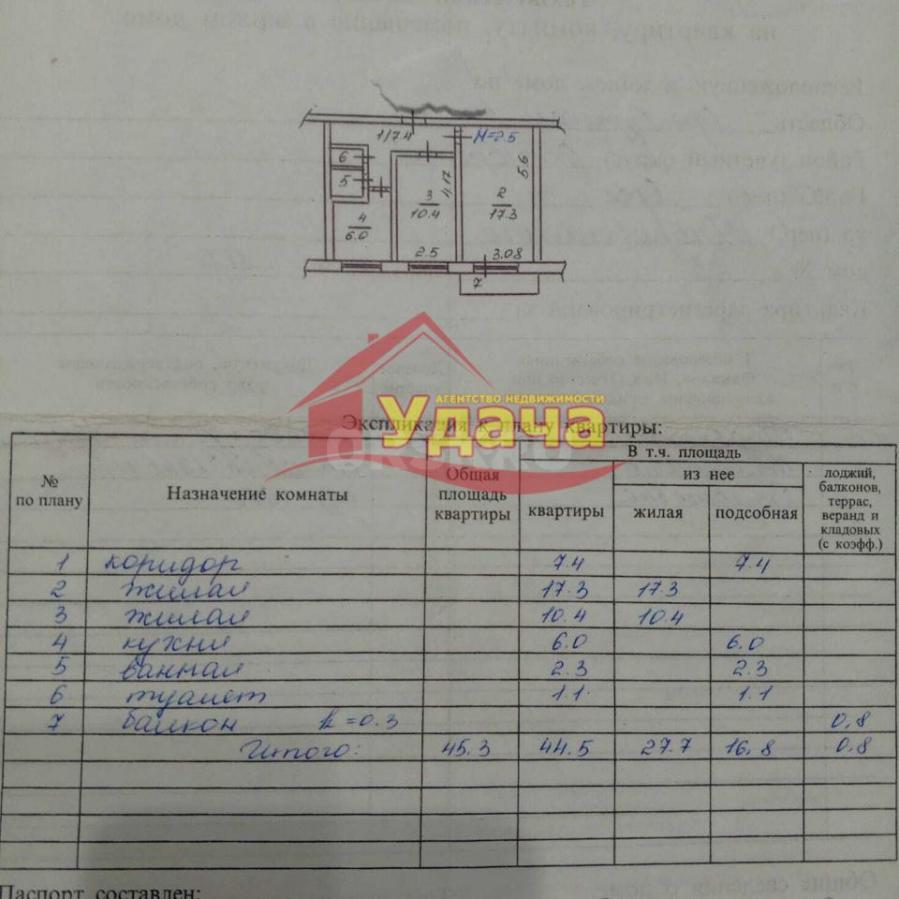 1/7.4
H=2.5
6
5
4.17
5.6
3
10.4
2
17.3
4
6.0
2.5
3.08
7
АГЕНТСТВО НЕДВИЖИМОСТИ
Удача
Экспликация к плану квартиры:
№ по плану
Назначение комнаты
Общая площадь квартиры
В т.ч. площадь
квартиры
из нее
жилая
подсобная
лоджий, балконов, террас, веранд и кладовых (с коэфф.)
1 коридор 7.4 7.4
2 жилая 17.3 17.3
3 жилая 10.4 10.4
4 кухня 6.0 6.0
5 ванная 2.3 2.3
6 туалет 1.1 1.1
7 балкон k=0.3 0,8
Итого: 45.3 44.5 27.7 16,8 0.8
Паспорт составлен: